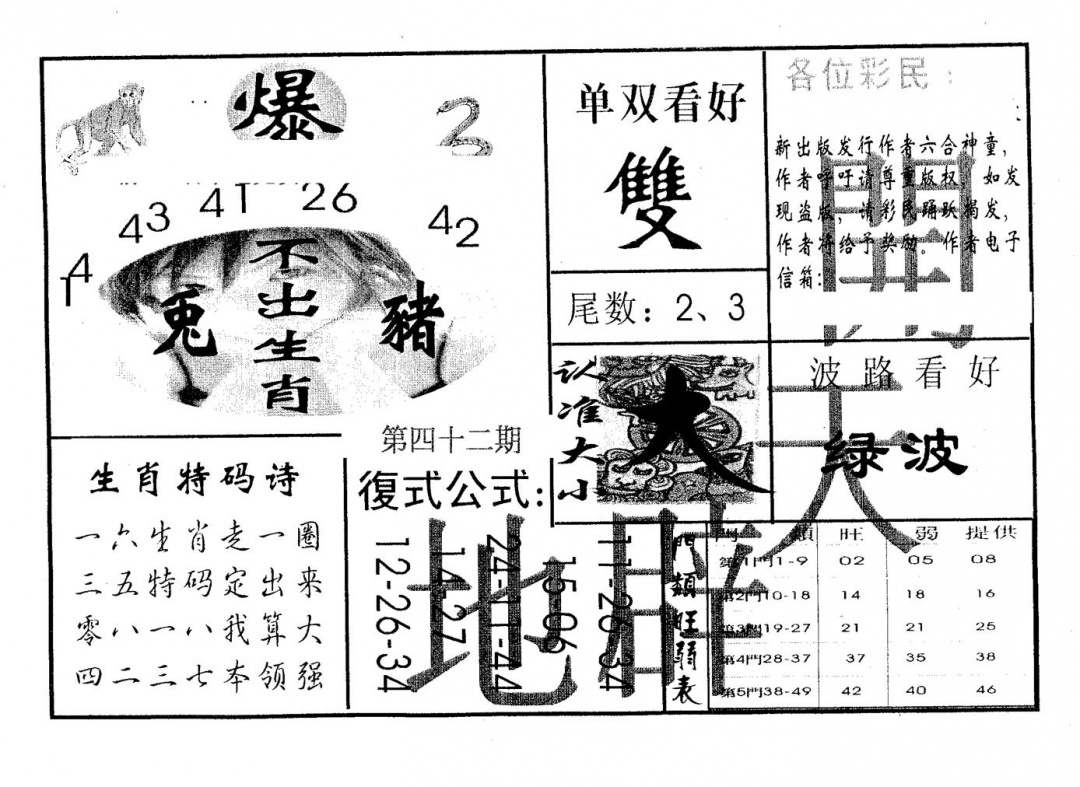 爆
2
14
43
41
26
42
不出生肖
兔
豬
单双看好
雙
尾数：2、3
各位彩民：
新出版发行作者六合神童，
作者呼吁请尊重版权，如发
现盗版，请彩民踊跃揭发，
作者将给予奖励。作者电子
信箱：
认准大小
大
波路看好
绿波
第四十二期
復式公式：
12-26-34
14-27
24-11-44
15-06
11-26-34
生肖特码诗
一六生肖走一圈
三五特码定出来
零八一八我算大
四二三七本领强
門類旺弱表
門類 旺 弱 提供
第1門1-9 02 05 08
第2門10-18 14 18 16
第3門19-27 21 21 25
第4門28-37 37 35 38
第5門38-49 42 40 46
天
地